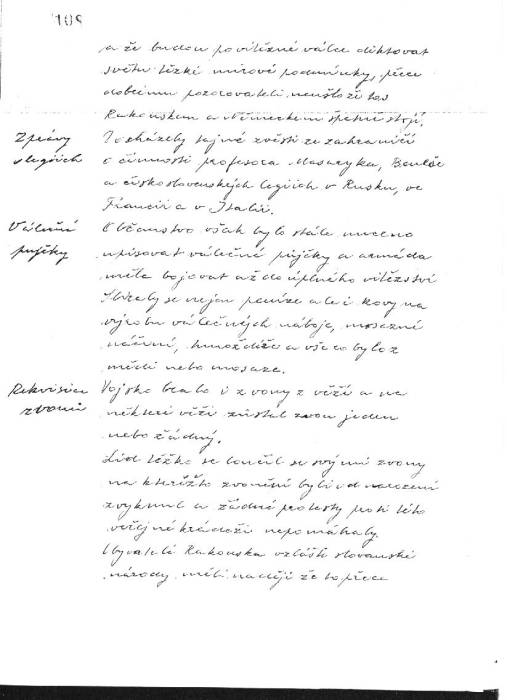 108
a že budou po vítězné válce diktovat
světu těžké mírové podmínky, přece
dobrému pozorovateli neušlo že to s
Rakouskem a Německem špatně stojí.
Zprávy
o legiích
Docházely tajné zvěsti ze zahraničí
o činnosti profesora Masaryka, Beneše
a československých legiích v Rusku, ve
Francii a v Italii.
Válečné
půjčky
Občanstvo však bylo stále nuceno
upisovat válečné půjčky a armáda
měla bojovat až do úplného vítězství
Sbíraly se nejen peníze ale i kovy na
výrobu válečných nábojů, mosazné
náčiní, hmoždíře a vše co bylo z
mědi nebo mosaze.
Rekvisice
zvonů
Vojsko bralo i zvony z věží a na
některé věži zůstal zvon jeden
nebo žádný.
Lid těžko se loučil se svými zvony
na kteréžto zvonění byli od narození
zvyknul a žádné protesty proti této
veřejné krádeži nepomáhaly.
Obyvatelé Rakouska vzláště slovanské
národy měli naději že to přece